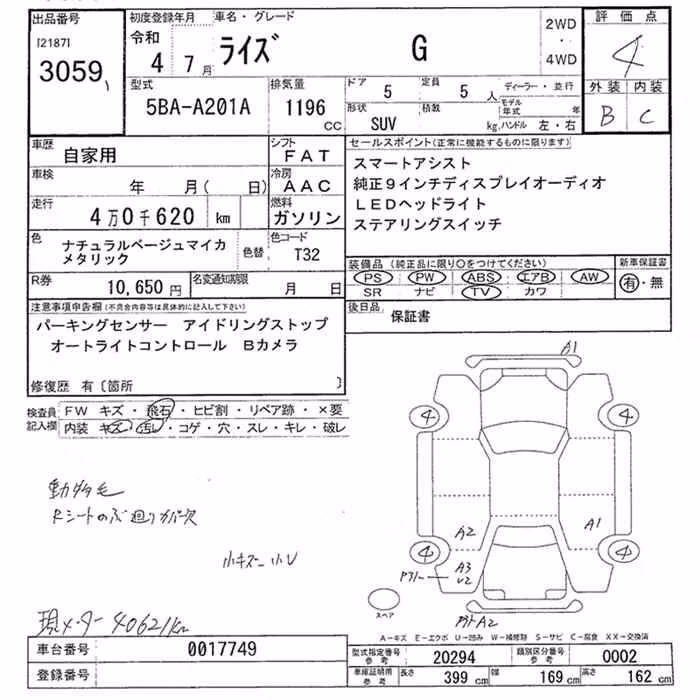 出品番号
[2187]
3059
初度登録年月
令和
4 7月
車名・グレード
ライズ G
2WD
・
4WD
評価点
4
外装 内装
B C
型式
5BA-A201A
排気量
1196 CC
ドア 5
定員 5人
形状 SUV
積載 kg
ディーラー・並行
モデル年式 年
ハンドル 左・右
車歴 自家用
シフト FAT
車検 年 月( 日)
冷房 AAC
走行 4万0千620 km
燃料 ガソリン
色 ナチュラルベージュマイカメタリック
色替
色コード T32
R券 10,650円
名変通知期限 月 日
セールスポイント(正常に機能するものに限ります)
スマートアシスト
純正9インチディスプレイオーディオ
LEDヘッドライト
ステアリングスイッチ
装備品(純正品に限り○をつけてください)
PS PW ABS エアB AW
SR ナビ TV カワ
新車保証書
有・無
後日品 保証書
注意事項申告欄(不具合内容等は具体的に記入して下さい)
パーキングセンサー アイドリングストップ
オートライトコントロール Bカメラ
修復歴 有〔箇所 〕
検査員記入欄
FW キズ・飛石・ヒビ割・リペア跡・×要
内装 キズ・汚レ・コゲ・穴・スレ・キレ・破レ
Rシート
小キズ 小U
現メーター40621km
A1
4
4
A2
A1
4
4
A3
U2
A2
スペア
A-キズ E-エクボ U-凹み W-補修跡 S-サビ C-腐食 XX-交換済
車台番号 0017749
登録番号
型式指定番号 参考 20294
類別区分番号 参考 0002
車庫証明用 参考
長さ 399 cm
幅 169 cm
高さ 162 cm